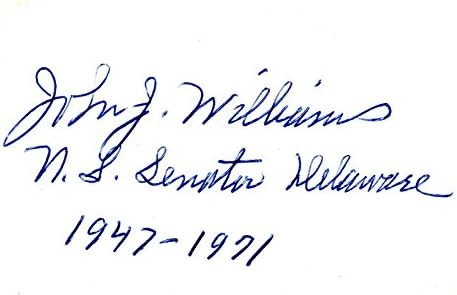 John J. Williams
U.S. Senator Delaware
1947-1971